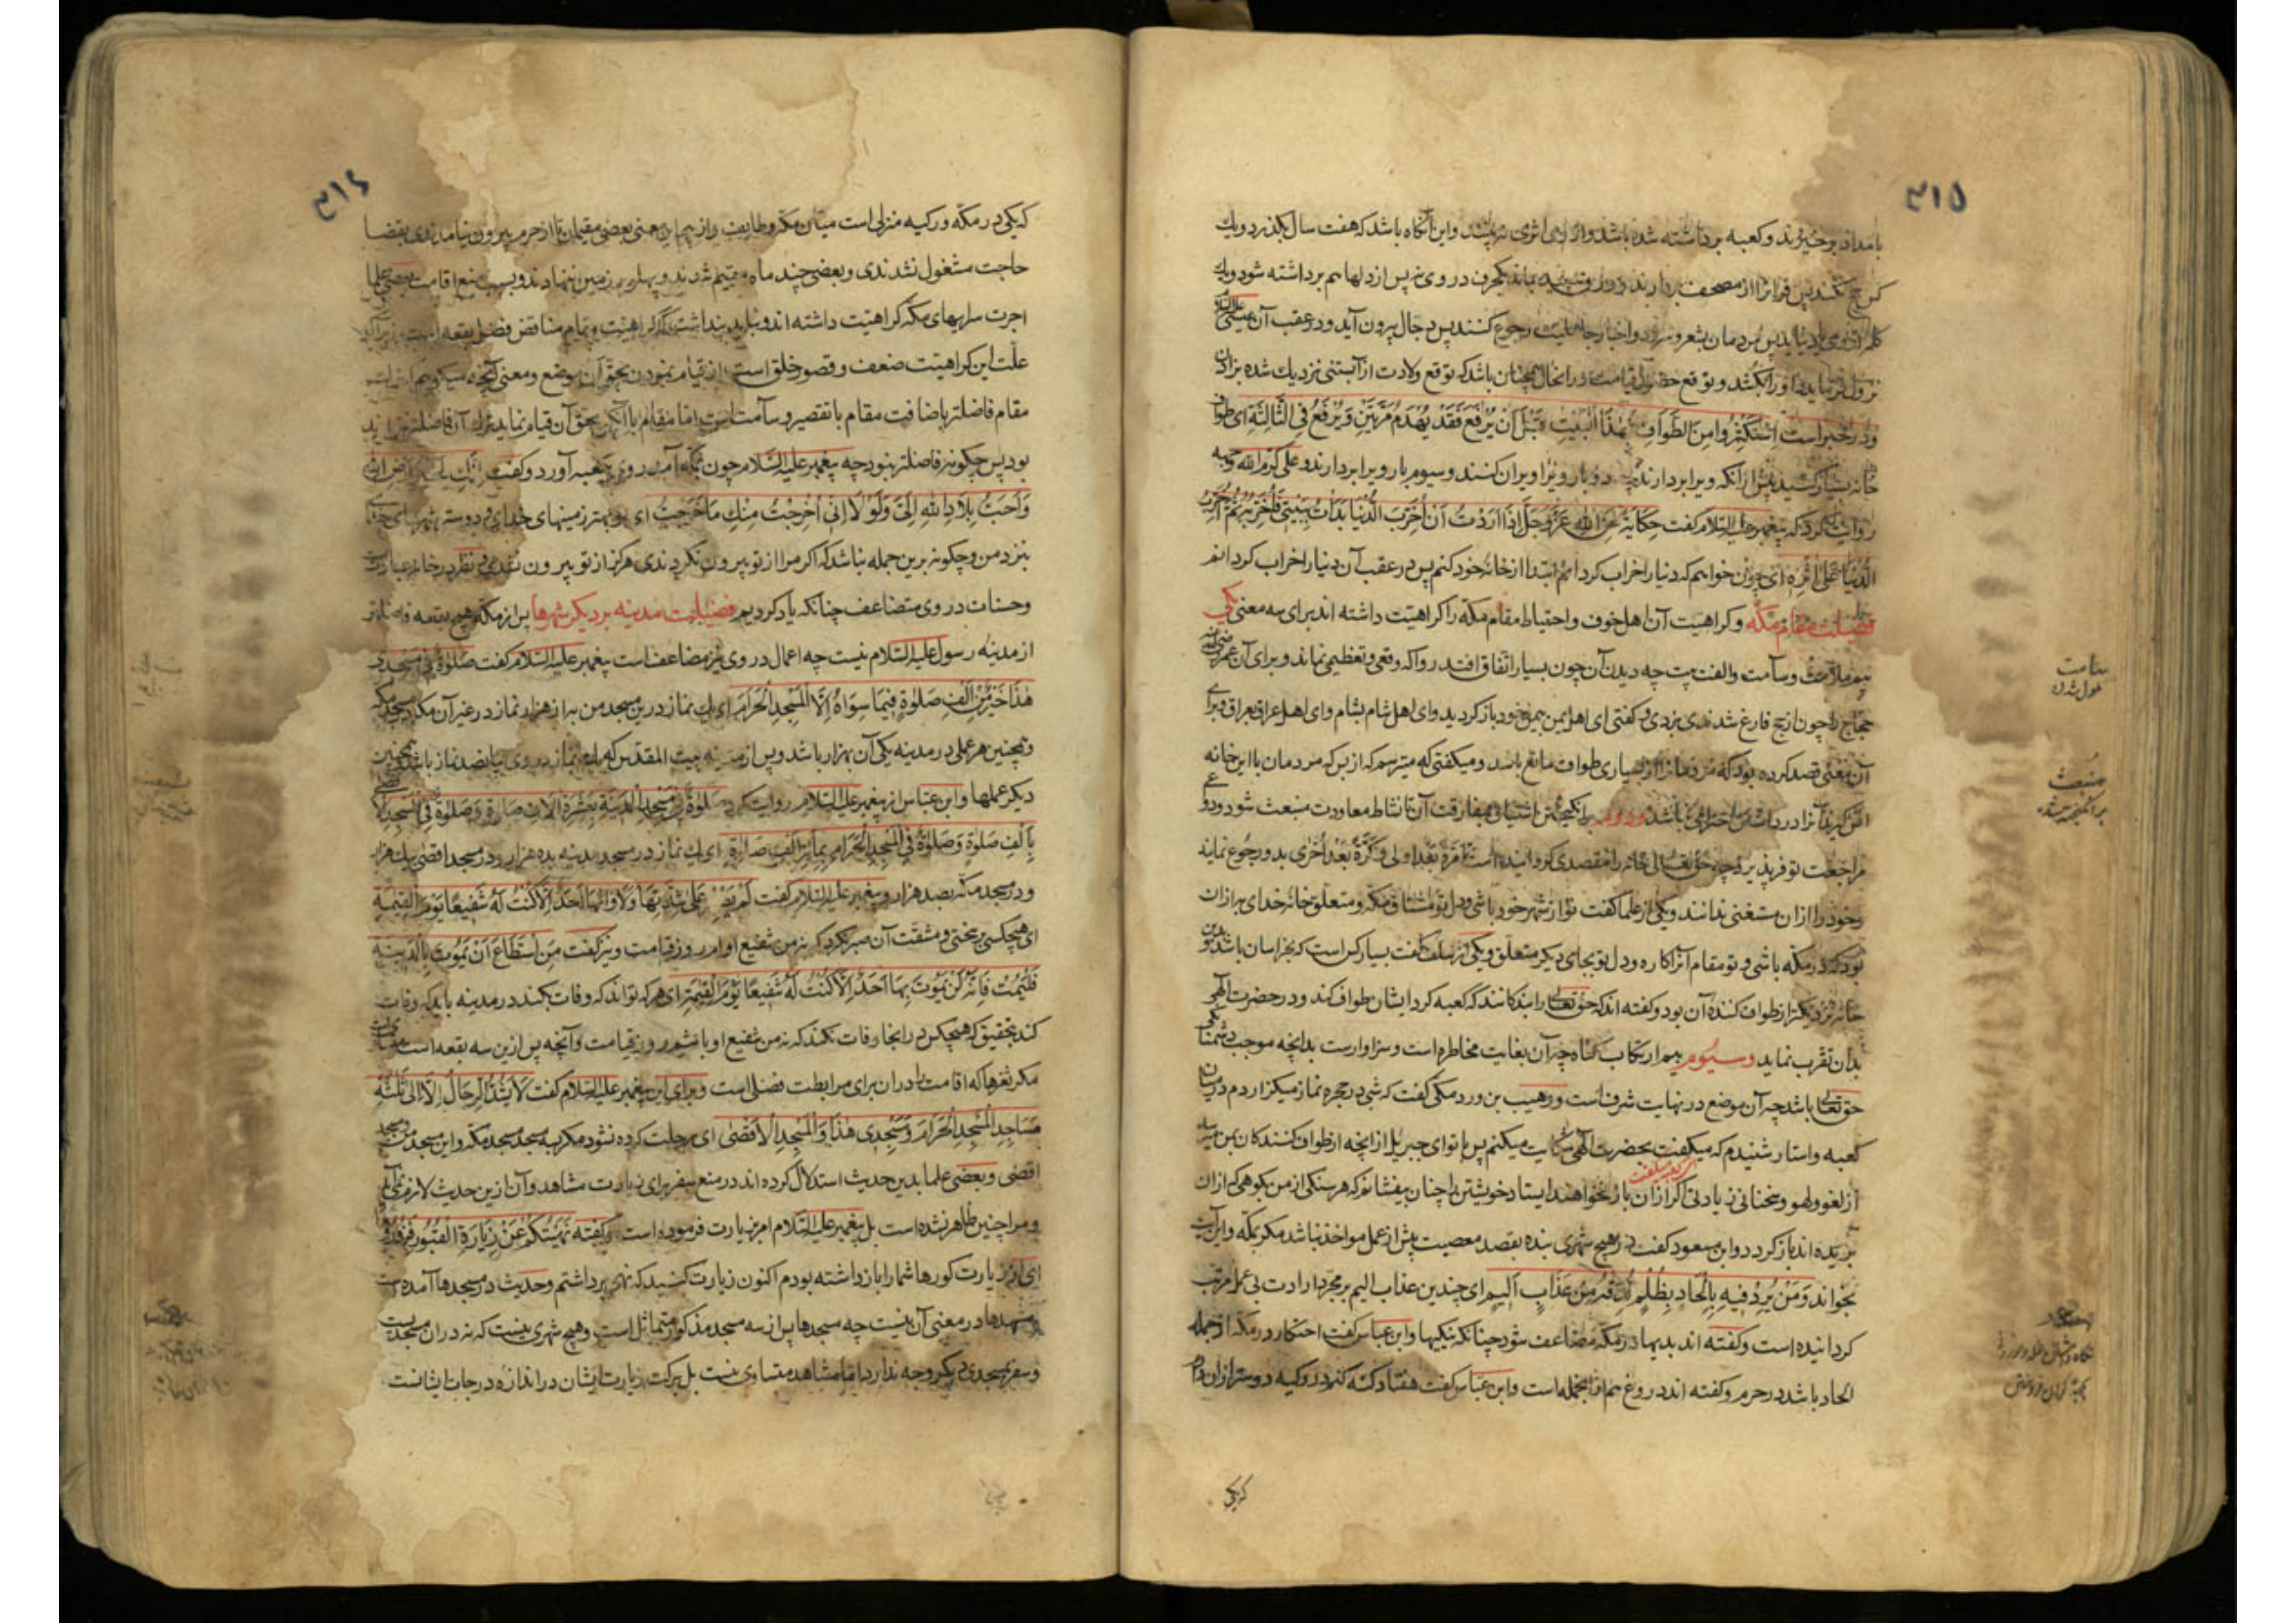 ۳۱۵
بامداد برخیزند و کعبه برداشته شده باشد و از وی اثری نه بینند و این آنگاه باشد که هفت سال بگذرد و یک
کس حج نکند پس قرآن را از مصحف بردارند و ورق سپید بماند یک حرف در وی نه پس از دلها هم برداشته شود و یک
کلمه از وی یاد نیاید پس مردمان بشعر و سرود و اخبار جاهلیت رجوع کنند پس دجال بیرون آید و در عقب آن عیسی
نزول فرماید و او را بکشد و توقع حصول قیامت در آنحال همچنان باشد که توقع ولادت از آبستنی نزدیک شده بزادن
و در خبر است اِسْتَكْثِرُوا مِنَ الطَّوَافِ بِهٰذَا الْبَيْتِ قَبْلَ اَنْ يُرْفَعَ فَقَدْ يُهْدَمُ مَرَّتَيْنِ وَيُرْفَعُ فِي الثَّالِثَةِ ای طواف
خانه بسیار کنید پیش از آنکه ویرا بردارند چه دو بار ویرا ویران کنند و سیوم بار ویرا بردارند و علی کرم الله وجهه
روایت کرد که پیغمبر علیه السلام گفت حكاية عن الله عَزَّ وَجَلَّ اِذَا اَرَدْتُ اَنْ اُخَرِّبَ الدُّنْيَا بَدَأْتُ بِبَيْتِي فَاُخَرِّبُهُ ثُمَّ اُخَرِّبُ
الدُّنْيَا عَلٰى اَثَرِهِ ای چون خواهم که دنیا را خراب کردانم ابتدا از خانه خود کنم پس در عقب آن دنیا را خراب کردانم
فضیلت مقام مکه و کراهیت آن اهل خوف و احتیاط مقام مکه را کراهیت داشته اند برای سه معنی یکی
بیم ملالت و سآمت و الفت چه دیدن آن چون بسیار اتفاق افتد روا که وقعی و تعظیمی نماند و برای آن عمر
حجاج را چون از حج فارغ شدندی بزدی و گفتی ای اهل یمن بیمن خود باز گردید و ای اهل شام بشام و ای اهل عراق بعراق و برای
آن معنی قصد کرده بود که مردمان را از بسیاری طواف مانع باشد و میگفتی که میترسم که از بس که مردمان با این خانه
انس گیرند آنرا در دلهاشان احترامی نباشد و دوم برانگیختن اشتیاق بمفارقت آن تا نشاط معاودت منبعث شود و دواعی
مراجعت توفر پذیرد چه حق تعالی خانه را مقصدی گردانیده است مَرَّةً بَعْدَ اُولٰى وَكَرَّةً بَعْدَ اُخْرٰى بدو رجوع نمایند
و خود را از آن مستغنی ندانند و یکی از علما گفت تو از شهر خود باشی و دل تو مشتاق مکه و متعلق خانه خدای به از آن
بود که در مکه باشی و تو مقام آنرا کاره و دل تو بجای دیگر متعلق و یکی از سلف گفت بسیار کس است که بخراسان باشد و بدین
خانه نزدیکتر از طواف کننده آن بود و گفته اند که حق تعالی را بندگانند که کعبه گرد ایشان طواف کند و در حضرت الهی
بدان تقرب نماید وسیوم بیم ارتکاب گناه چه آن بغایت مخاطره است و سزاوارست بدانچه موجب دشمنی
حق تعالی باشد چه آن موضع در نهایت شرف است و وهیب بن ورد مکی گفت که شبی در حجره نماز میگزاردم در میان
کعبه و استار شنیدم که میگفت بحضرت الهی شکایت میکنم پس با تو ای جبریل از آنچه از طواف کنندگان بمن میرسد
از لغو و لهو و سخنانی زیادتی اگر از آن باز نخواهند ایستاد خویشتن را چنان بیفشانم که هر سنگی از من بکوهی که از آن
بریده اند باز گردد و ابن مسعود گفت در هیچ شهری بنده بقصد معصیت پیش از عمل مواخذ نباشد مگر بمکه و این آیت
بخواند وَمَنْ يُرِدْ فِيهِ بِاِلْحَادٍ بِظُلْمٍ نُذِقْهُ مِنْ عَذَابٍ اَلِيمٍ ای چندین عذاب الیم بر مجرد ارادت بی عمل مرتب
گردانیده است و گفته اند بدیها در مکه مضاعف شود چنانکه نیکیها و ابن عباس گفت احتکار در مکه از جمله
الحاد باشد در حرم و گفته اند دروغ هم از آنجمله است و ابن عباس گفت هفتاد گنه کنم در رکیه دوستر از آن دارم
سآمت
ملول شدن
منبعث
برانگیخته شده
احتکار
نگاه داشتن غله
بجهت گران فروختن
که یکی
۳۱۶
که یکی در مکه و رکیه منزلی است میان مکه و طایف و از بیم این معنی بعضی مقیمان تا از حرم بیرون نیامدندی بقضا
حاجت مشغول نشدندی و بعضی چند ماه مقیم شدند و پهلو بر زمین ننهادند و بسبب منع اقامت بعضی علما
اجرت سرایهای مکه کراهیت داشته اند و نباید پنداشت که کراهیت مقام مناقض فضل بقعه است زیرا که
علت این کراهیت ضعف و قصور خلق است از قیام نمودن بحق آن موضع و معنی آنچه میگوییم
مقام فاضلتر باضافت مقام با تقصیر و سآمت است اما مقام با آنکه بحق آن قیام نماید ترک آن فاضلتر نه
بود پس چگونه فاضلتر نبود چه پیغمبر علیه السلام چون بمکه آمد روی بکعبه آورد و گفت اِنَّكِ لَخَيْرُ اَرْضِ اللّٰهِ
وَاَحَبُّ بِلَادِ اللّٰهِ اِلَيَّ وَلَوْلَا اَنِّي اُخْرِجْتُ مِنْكِ مَا خَرَجْتُ ای تو بهتر زمینهای خدایی و دوسته شهرهای خدای
نزد من و چگونه برین جمله نباشد که اگر مرا از تو بیرون نکردندی هرگز از تو بیرون نشدمی و نظر در خانه عبادت
وحسنات در وی متضاعف چنانکه یاد کردیم فضیلت مدینه بر دیگر شهرها پس از مکه هیچ بقعه فاضلتر
از مدینه رسول علیه السلام نیست چه اعمال در وی نیز مضاعف است پیغمبر علیه السلام گفت صَلٰوةٌ فِي مَسْجِدِي
هٰذَا خَيْرٌ مِنْ اَلْفِ صَلٰوةٍ فِيمَا سِوَاهُ اِلَّا الْمَسْجِدَ الْحَرَامَ ای یک نماز درین مسجد من به از هزار نماز در غیر آن مگر مسجد مکه
و همچنین هر عملی در مدینه یکی آن بهزار باشد و پس از مدینه بیت المقدس که یک نماز در وی بپانصد نماز باشد و همچنین
دیگر عملها و ابن عباس از پیغمبر علیه السلام روایت کرد صَلٰوةٌ فِي مَسْجِدِ الْمَدِينَةِ بِعَشَرَةِ اٰلَافِ صَلٰوةٍ وَصَلٰوةٌ فِي الْمَسْجِدِ الْاَقْصٰى
بِاَلْفِ صَلٰوةٍ وَصَلٰوةٌ فِي الْمَسْجِدِ الْحَرَامِ بِمِائَةِ اَلْفِ صَلٰوةٍ ای یک نماز در مسجد مدینه بده هزار و در مسجد اقصی بیک هزار
و در مسجد مکه بصد هزار و پیغمبر علیه السلام گفت لَمْ يَصْبِرْ عَلٰى شِدَّتِهَا وَلَاْوَائِهَا اَحَدٌ اِلَّا كُنْتُ لَهُ شَفِيعًا يَوْمَ الْقِيٰمَةِ
ای هیچکس بر سختی و مشقت آن صبر نکرد که نه من شفیع او ام روز قیامت و نیز گفت مَنِ اسْتَطَاعَ اَنْ يَمُوتَ بِالْمَدِينَةِ
فَلْيَمُتْ فَاِنَّهُ لَنْ يَمُوتَ بِهَا اَحَدٌ اِلَّا كُنْتُ لَهُ شَفِيعًا يَوْمَ الْقِيٰمَةِ ای هر که تواند که وفات کند در مدینه باید که وفات
کند بتحقیق که هیچکس در آنجا وفات نکند که نه من شفیع او باشم روز قیامت و آنچه پس ازین سه بقعه است
مگر ثغرها که اقامت در آن برای مرابطت فضلی است و برای این پیغمبر علیه السلام گفت لَا تُشَدُّ الرِّحَالُ اِلَّا اِلٰى ثَلٰثَةِ
مَسَاجِدَ الْمَسْجِدِ الْحَرَامِ وَمَسْجِدِي هٰذَا وَالْمَسْجِدِ الْاَقْصٰى ای رحلت کرده نشود مگر بسه مسجد مسجد مکه و این مسجد من و مسجد
اقصی و بعضی علما بدین حدیث استدلال کرده اند در منع سفر برای زیارت مشاهد و آن ازین حدیث لازم نمی آید
و مرا چنین ظاهر نشده است بل پیغمبر علیه السلام امر بزیارت فرموده است و گفته نَهَيْتُكُمْ عَنْ زِيَارَةِ الْقُبُورِ فَزُورُوهَا
ای از زیارت گورها شما را باز داشته بودم اکنون زیارت کنید که نهی برداشتم و حدیث در مسجدها آمده است
و مشهدها در معنی آن نیست چه مسجدها پس از سه مسجد مذکور متماثل است و هیچ شهری نیست که نه در آن مسجدیست
و سفر بمسجدی دیگر وجه ندارد اما مشاهد متساوی نیست بل برکت زیارت ایشان در اندازه درجات ایشانست